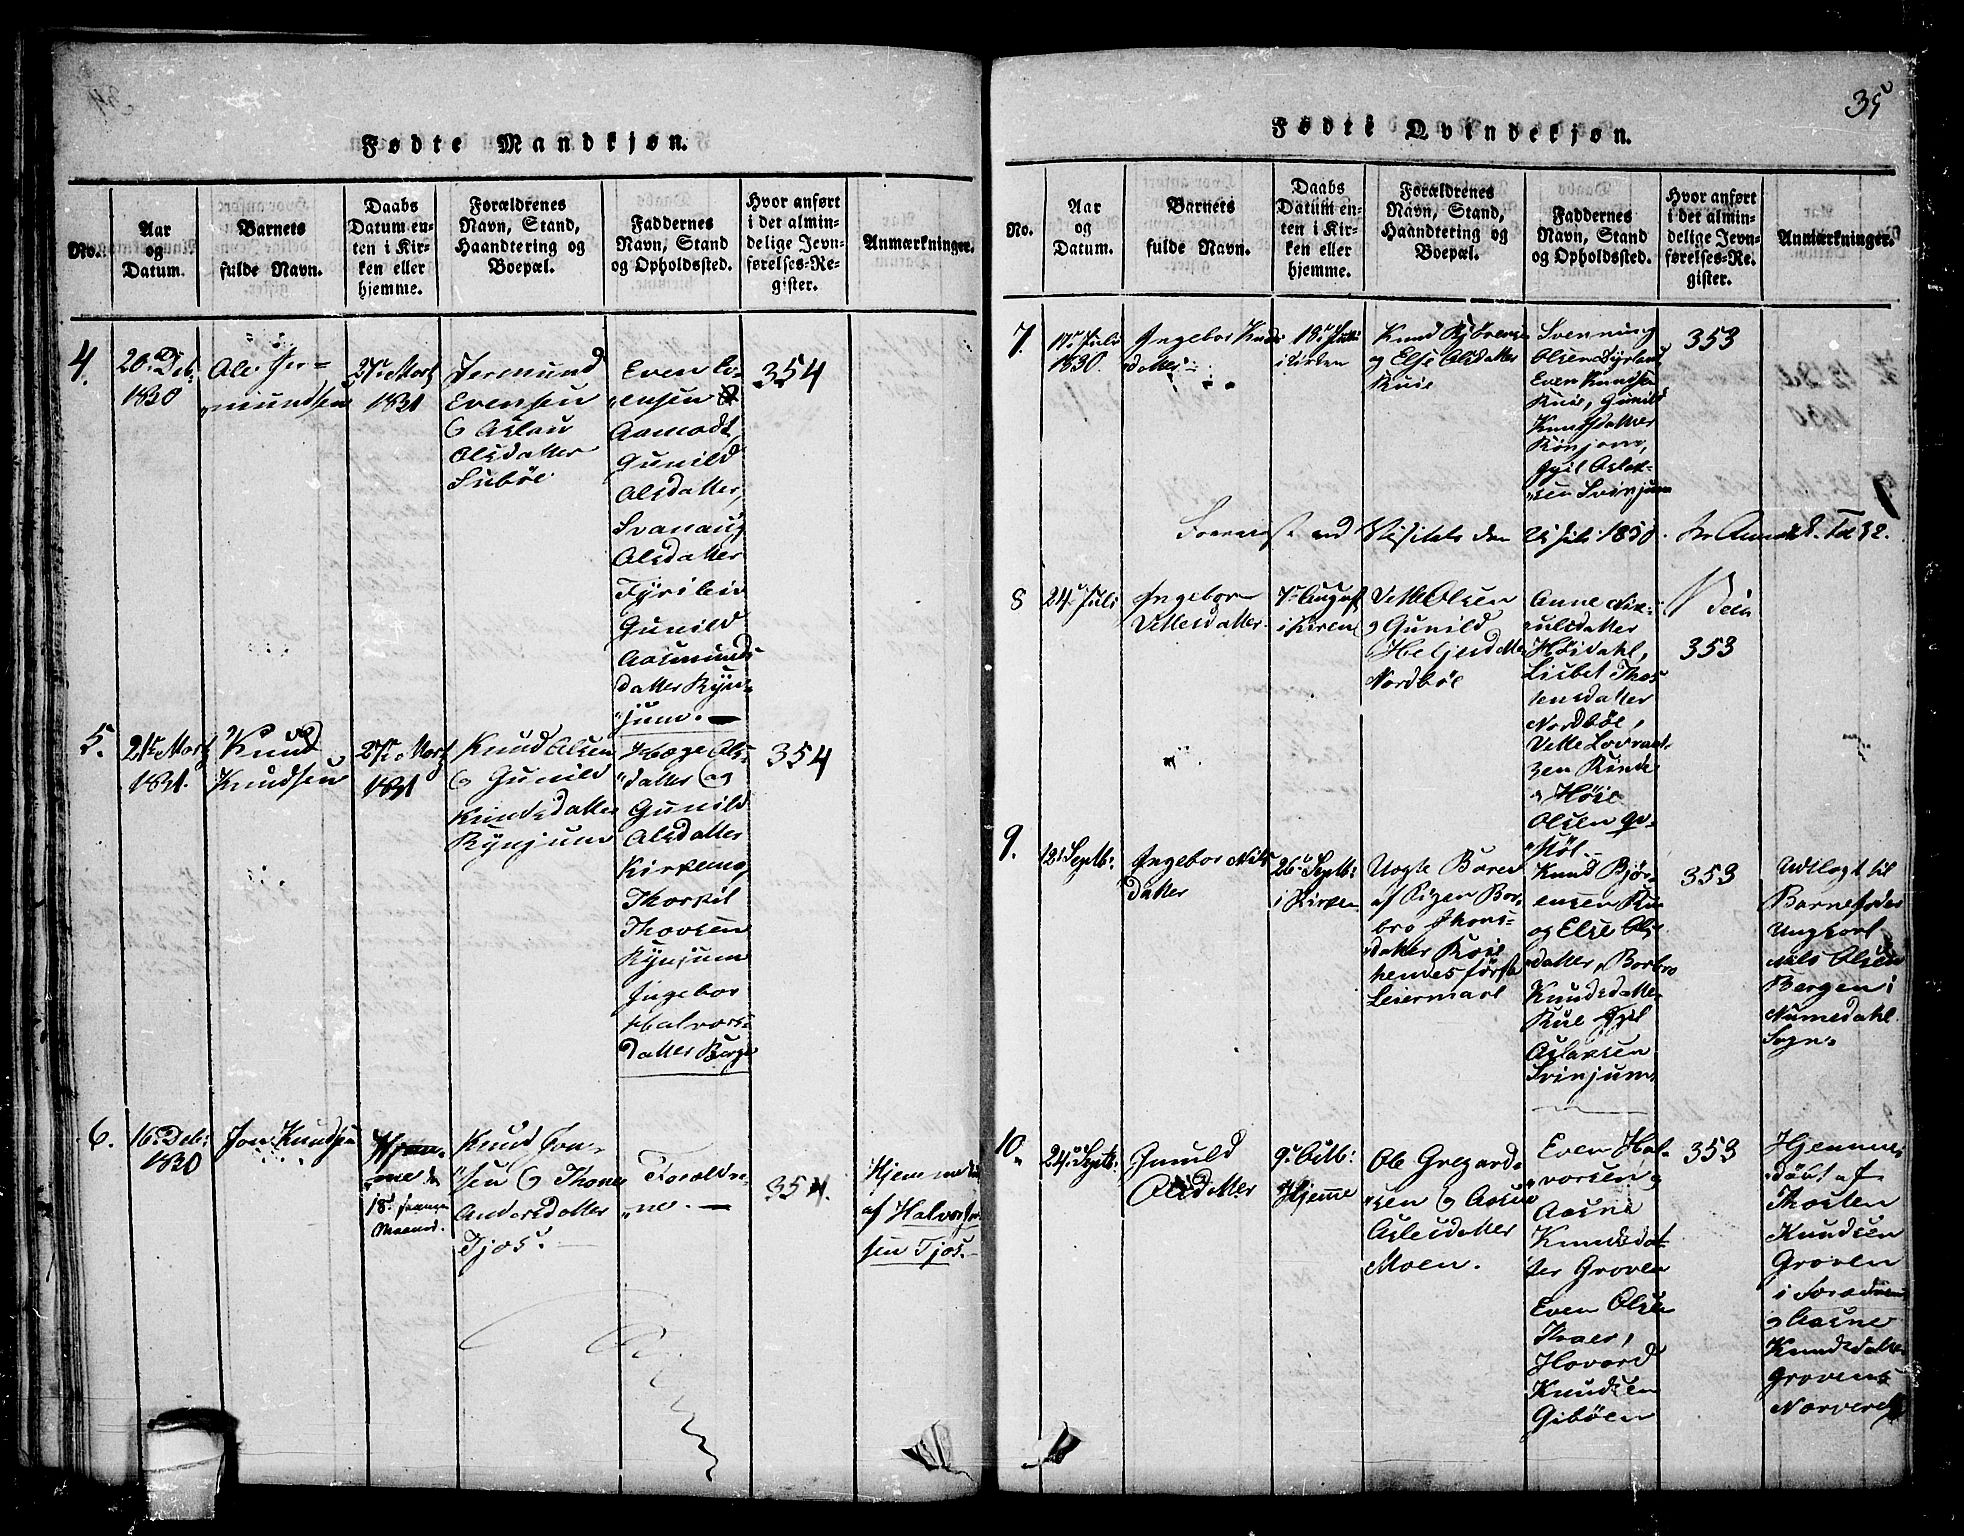 35
Fødte Mandkjøn.
No.
Aar
og
Datum.
Barnets
fulde Navn.
Daabs
Datum en-
ten i Kir-
ken eller
hjemme.
Forældrenes
Navn, Stand,
Haandtering og
Boepæl.
Faddernes
Navn, Stand
og Opholdssted.
Hvor anført
i det almin-
delige Jevn-
førelses-Re-
gister.
Anmærkninger.
4.
20 Deb:
1830
Ole Jer-
mundsen
27de Marts
1831
Jermund
Evensen
& Aslau
Olsdatter
Suböe
Even Ev-
ensen
Aamodt,
Gunild
Olsdatter,
Svanaug
Olsdatter
Tyrilein
Gunild
Aasmunds
datter Kyn-
jum.
354
5.
21de Marts
1831.
Knud
Knudsen
27de Marts
1831
Knud Olsen
& Gunild
Knudsdatter
Kynjum
Hæge Ols-
datter og
Gunild
Olsdatter
Kirkemo,
Thorkil
Thovsen
Kynjum
Ingebor
Halvors-
datter Berge
354
6.
16 Deb:
1830
Jon Knudsen
Hjem-
me d.
18d samme
Maaned.
Knud Jon-
sen & Thone
Andersdatter
Tjos.
Forældre-
ne.
354.
Hjemmedøbt
af Halvor
sen Tjos.
Fødte Qvindekjøn.
No.
Aar
og
Datum.
Barnets
fulde Navn.
Daabs
Datum en-
ten i Kir-
ken eller
hjemme.
Forældrenes
Navn, Stand,
Haandtering og
Boepæl.
Faddernes
Navn, Stand
og Opholdssted.
Hvor anført
i det almin-
delige Jevn-
førelses-Re-
gister.
Anmærkninger.
7.
17de Juli
1830.
Ingebor Knuds
datter
18de Juli
i Kirken
Knud Bjørensen
og Else Olsdatter
Kuie
Svenning
Olsen Tyrland,
Even Knudsen
Kuie, Gunild
Knudsdatter
Kynjom,
Gjil Aslak-
sen Svinjum
353
ved Visitats den 21 Juli 1830.
8
24d Juli
Ingebor
Vettesdatter
7de August
i Kirken
Vette Olsen
& Gunild
Heljesdatter
Nordböe
Anne Nik-
ulsdatter
Høidahl,
Lisbet Thos-
tensdatter
Nordböe,
Vette Lovrant-
zen Rinde
& Høie
Olsen
353
9.
12 Septb:
Ingebor Nils
datter
26de Septb:
i Kirken
Uægte Baren
af Pigen Bor-
bro Thons-
datter Koie
hennes første
Leiermaal
Knud Bjør-
ensen Kui
og Else Ols-
datter, Borbro
Knudsdatter
Kuie Gjil
Aslaksen
Svinjum,
353
Udlagt til
Barnefader
Ungkarl
Nils Olsen
Bergen i
Numedahl
Sogn.
10.
24de Septb:
Gunild
Olsdatter
9de Octb:
Hjemme
Ole Gregard-
sen & Aasne
Aslesdatter
Moen.
Even Hal-
vorsen &
Aasne
Knudsdat-
ter Groven
Even Olsen
Traer,
Hovard
Knudsen
Giböen
353
Hjemme-
døbt af
Thosten
Knudsen
Groven
i
& Aasne
Knudsdatter
Groven